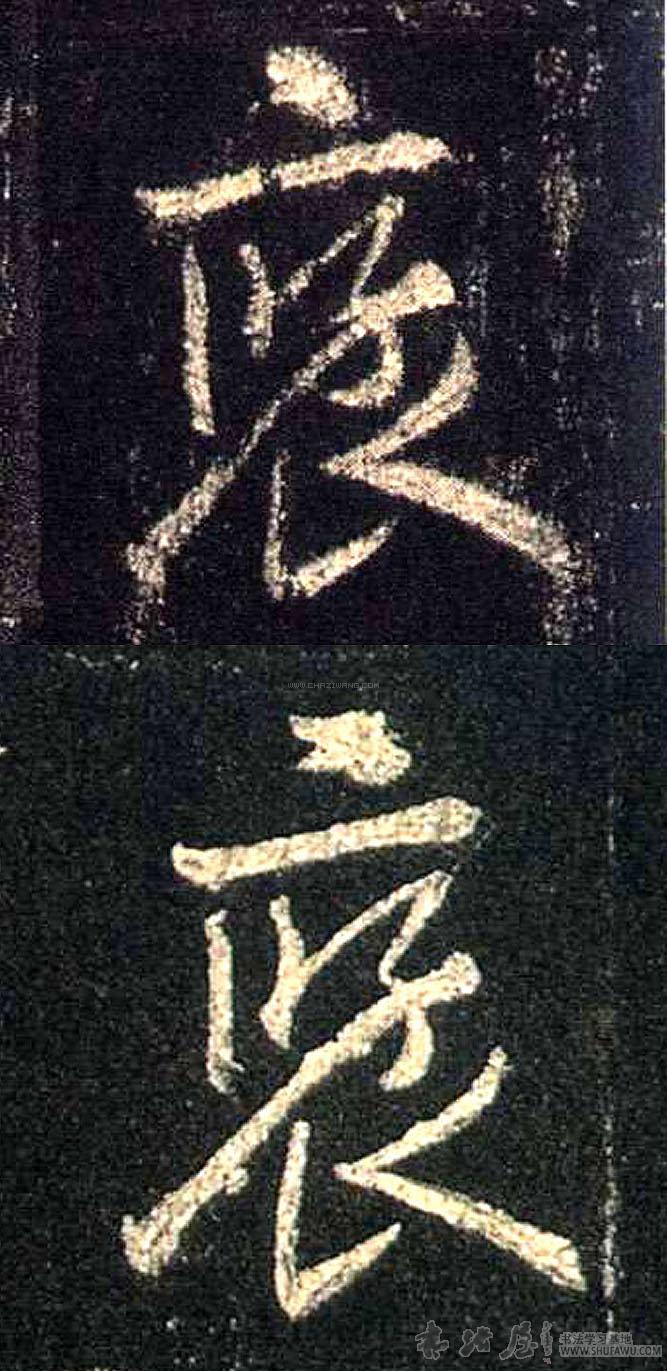 褒
WWW.CHAZIWANG.COM
褒
书法学习基地
WWW.SHUFAWU.COM